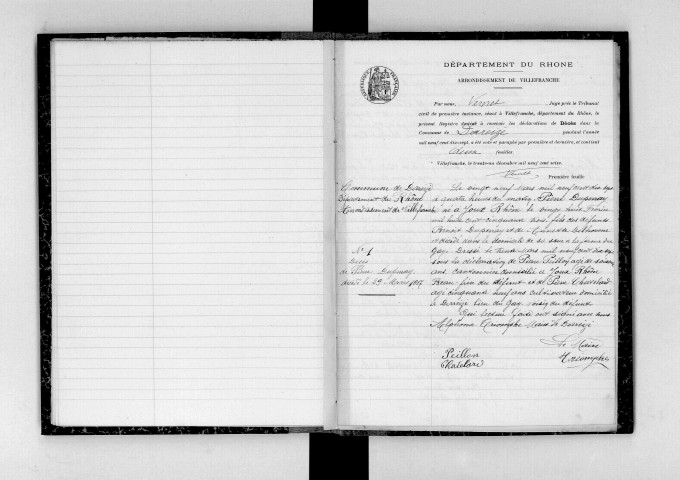 DÉPARTEMENT DU RHONE
ARRONDISSEMENT DE VILLEFRANCHE
RÉPUBLIQUE FRANÇAISE
Par nous, Juge près le Tribunal
civil de première instance, séant à Villefranche, département du Rhône, le
présent Registre destiné à recevoir les déclarations de Décès dans la
Commune de Dareizé pendant l'année
mil neuf cent dix-sept, a été coté et paraphé par première et dernière, et contient
feuilles.
Villefranche, le trente-un décembre mil neuf cent seize.
Première feuille
Commune de Dareizé
Département du Rhône
Arrondissement de Villefranche
N° 1
Décès
de Pierre Dupinay
décédé le 29 Mars 1917
Le vingt neuf mars mil neuf cent dix sept
à quatre heures du matin, Pierre Dupinay
né à Joux Rhône le vingt
mil huit cent cinquante trois, fils des défunts
Benoit Dupinay et de
décédé dans le domicile de
Gay. Dressé le trente mars mil neuf cent dix sept
sur la déclaration de Pierre Peillon agé de
ans, cantonnier domicilié à Joux Rhône
Beau-frère du défunt et de Pierre Chatelard
agé cinquante neuf ans cultivateur domicilié
à Dareizé lieu du Gay voisin du défunt
Qui lecture faite ont signé avec nous
Alphonse Triomphe Maire de Dareizé
Le Maire
Peillon
Chatelard
Triomphe